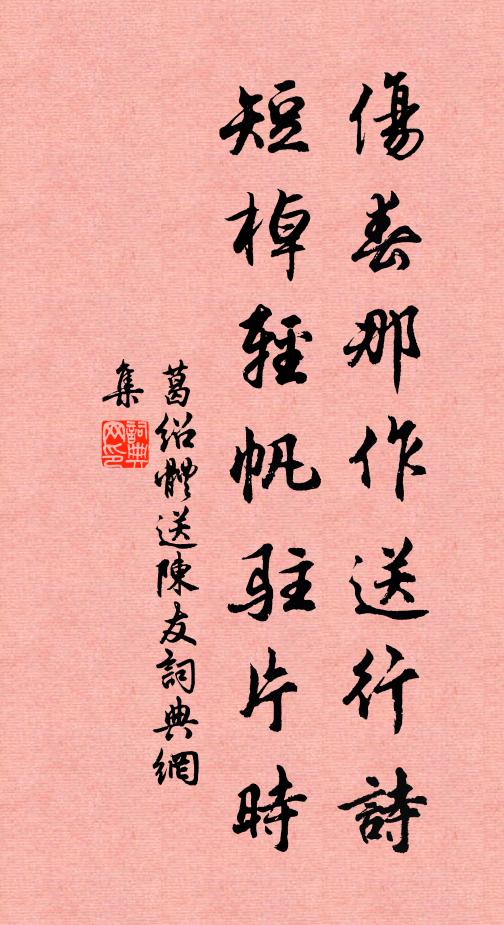 傷春那作送行詩
短棹輕帆駐片時
葛紹體送陳友詞典網
集
詞典
网印